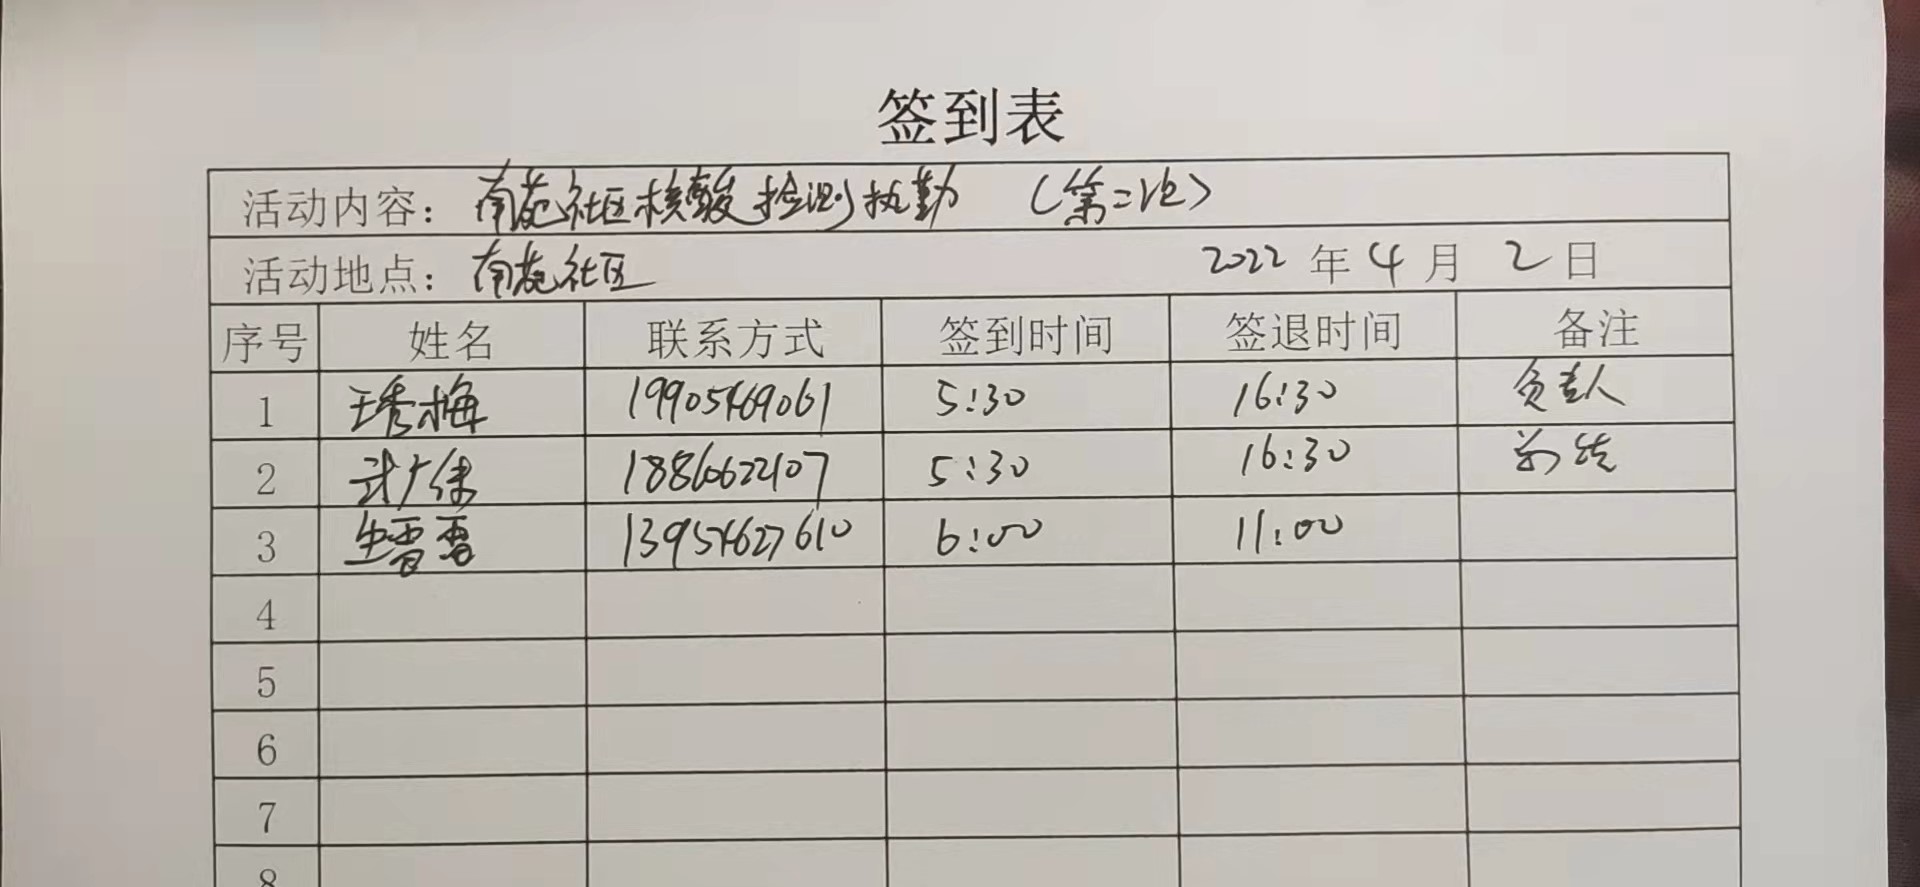 签到表
活动内容：南苑社区核酸检测执勤 （第二次）
活动地点：南苑社区 2022 年 4 月 2 日
序号 姓名 联系方式 签到时间 签退时间 备注
1 王秀梅 19905469061 5:30 16:30 负责人
2 18860622107 5:30 16:30
3 雷雷 13954627610 6:00 11:00
4
5
6
7
8